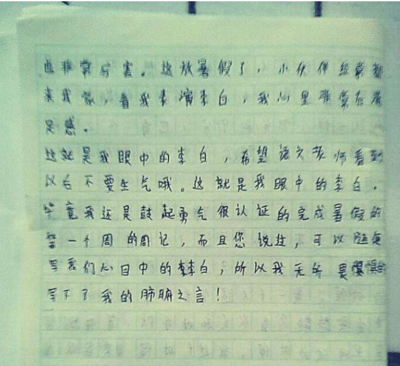 也非常厉害。这放暑假了，小伙伴经常都
来我家，看我表演李白，我心里非常有满
足感。
这就是我眼中的李白，希望语文老师看到
以后不要生气哦。这就是我眼中的李白。
毕竟我还是鼓起勇气很认证的完成暑假的
第一个周的周记，而且您说过，可以随便
写我们心目中的李白，所以我无所畏惧的
写下了我的肺腑之言！